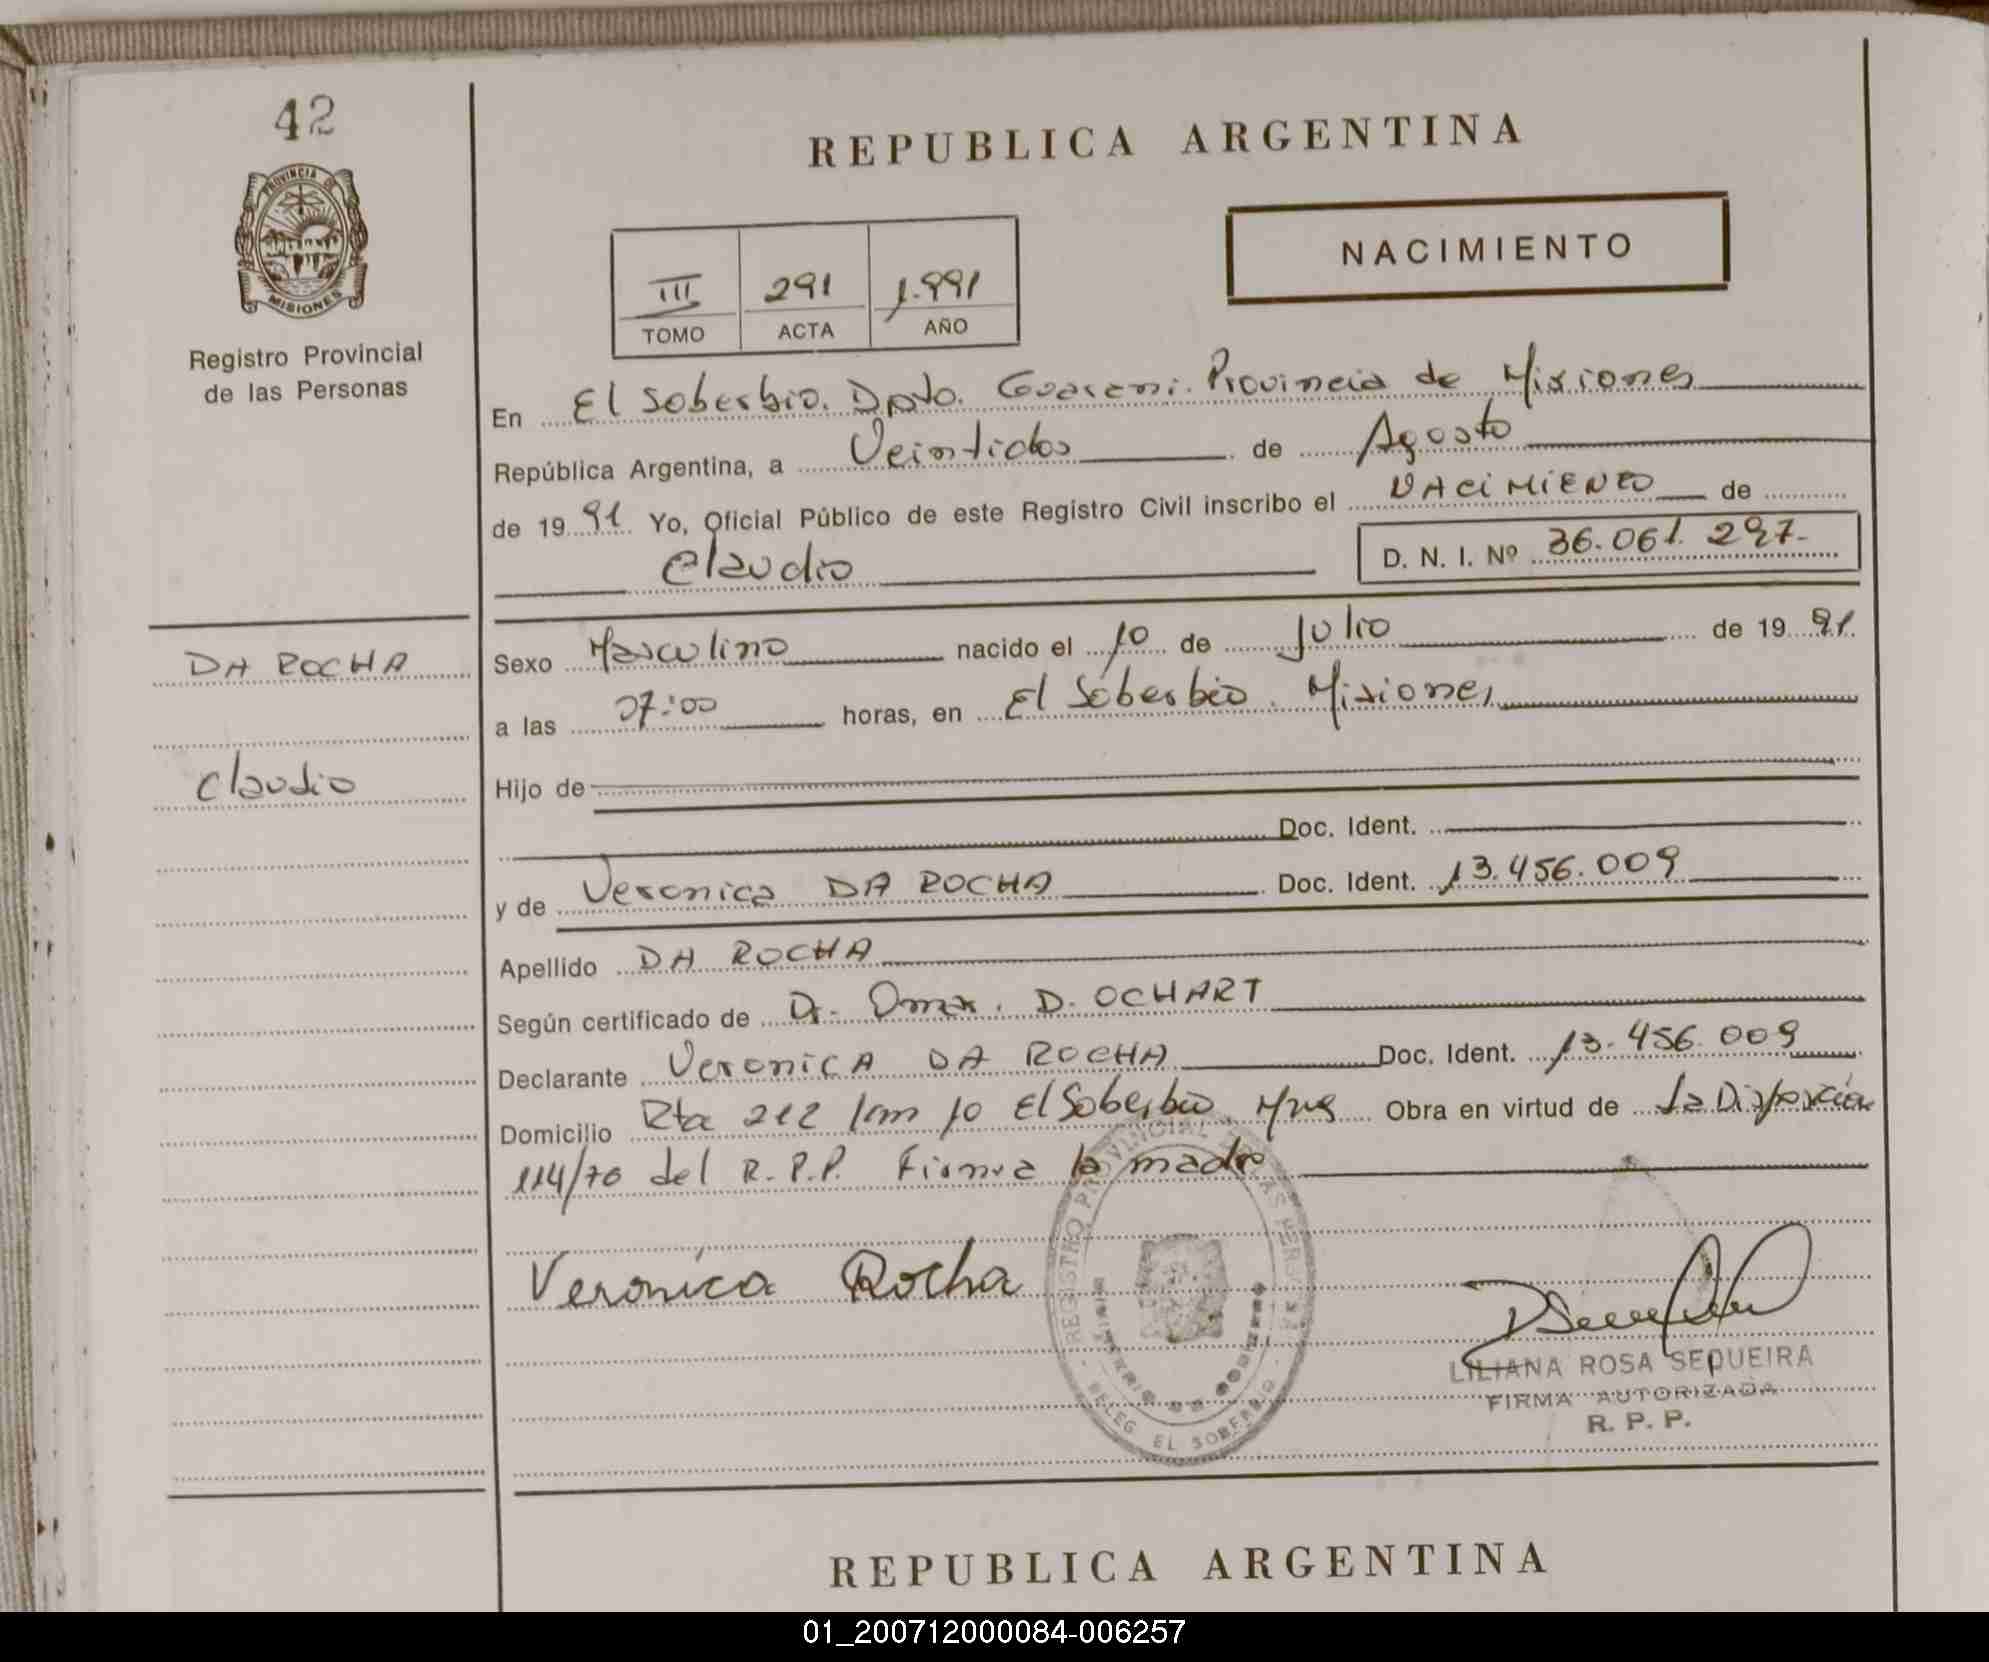 42
PROVINCIA DE
MISIONES
Registro Provincial
de las Personas
DA ROCHA
Claudio
REPUBLICA ARGENTINA
III 291 1.991
TOMO ACTA AÑO
NACIMIENTO
En El Soberbio. Dpto. Guarani. Provincia de Misiones
República Argentina, a Veintidos de Agosto
de 1991 Yo, Oficial Público de este Registro Civil inscribo el NACIMIENTO de
Claudio D. N. I. Nº 36.061.297.-
Sexo Masculino nacido el 10 de Julio de 1991.
a las 07:00 horas, en El Soberbio. Misiones
Hijo de
Doc. Ident.
y de Veronica DA ROCHA Doc. Ident. 13.456.009
Apellido DA ROCHA
Según certificado de Dr. Omar. D. OCHART
Declarante VeronicA DA ROCHA Doc. Ident. 13.456.009
Domicilio Rta 212 km 10 El Soberbio Mnes Obra en virtud de La Disposición
114/70 del R.P.P. Firma la madre
Verónica Rocha
REGISTRO PROVINCIAL DE LAS PERSONAS
DELEG EL SOBERBIO
LILIANA ROSA SEQUEIRA
FIRMA AUTORIZADA
R. P. P.
REPUBLICA ARGENTINA
01_200712000084-006257